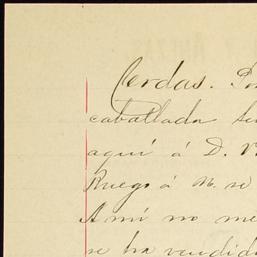 Cerdas. Por
caballada se
aquí á D. V.
Ruego á M. se
A mí no me
se ha vendido